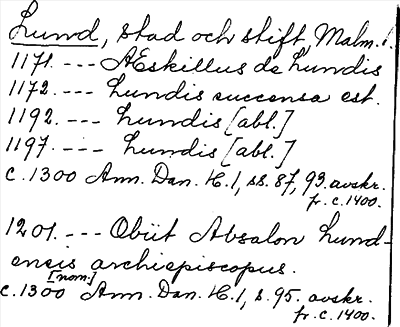 Lund, stad och stift, Malm. l.
1171. --- AEskillus de Lundis
1172. --- Lundis succensa est.
1192. --- Lundis [abl.]
1197. --- Lundis [abl.]
c. 1300 Ann. Dan. H. 1, ss. 87, 93. avskr.
fr. c. 1400.
1201. --- Obiit Absalon Lund-
ensis archiepiscopus.
[nom.]
c. 1300 Ann. Dan. H. 1, s. 95. avskr.
fr. c. 1400.